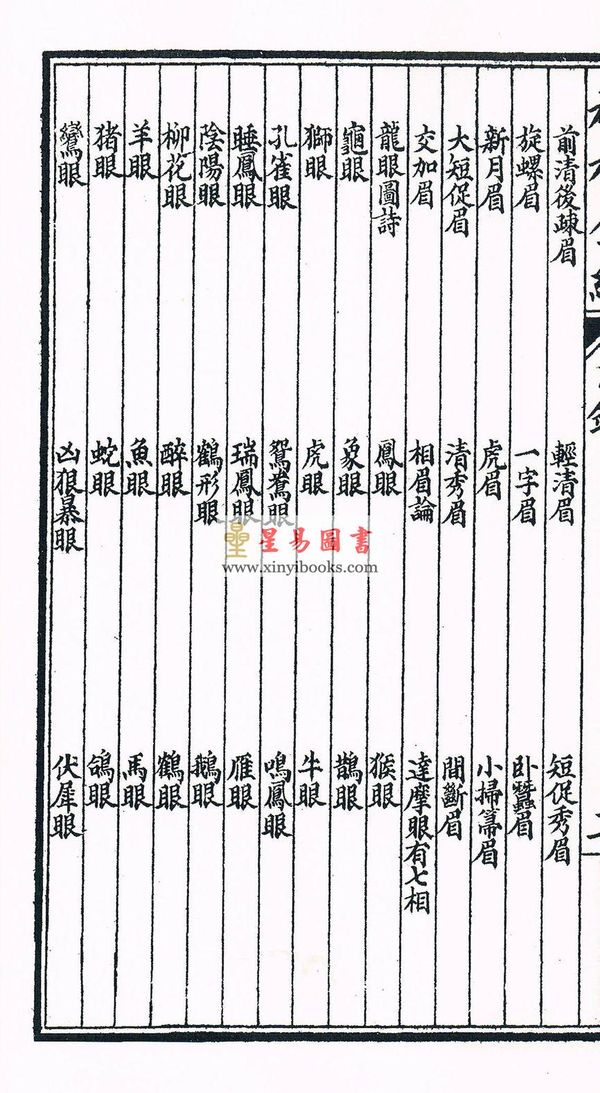 前清後疎眉 輕清眉 短促秀眉
旋螺眉 一字眉 卧蠶眉
新月眉 虎眉 小掃箒眉
大短促眉 清秀眉 間斷眉
交加眉 相眉論 達摩眼有七相
龍眼圖詩 鳳眼 猴眼
龜眼 象眼 鵲眼
獅眼 虎眼 牛眼
孔雀眼 鴛鴦眼 鳴鳳眼
睡鳳眼 瑞鳳眼 雁眼
陰陽眼 鶴形眼 鵝眼
柳花眼 醉眼 鶴眼
羊眼 魚眼 馬眼
猪眼 蛇眼 鴿眼
鸞眼 凶狠暴眼 伏犀眼
星易圖書
www.xinyibooks.com